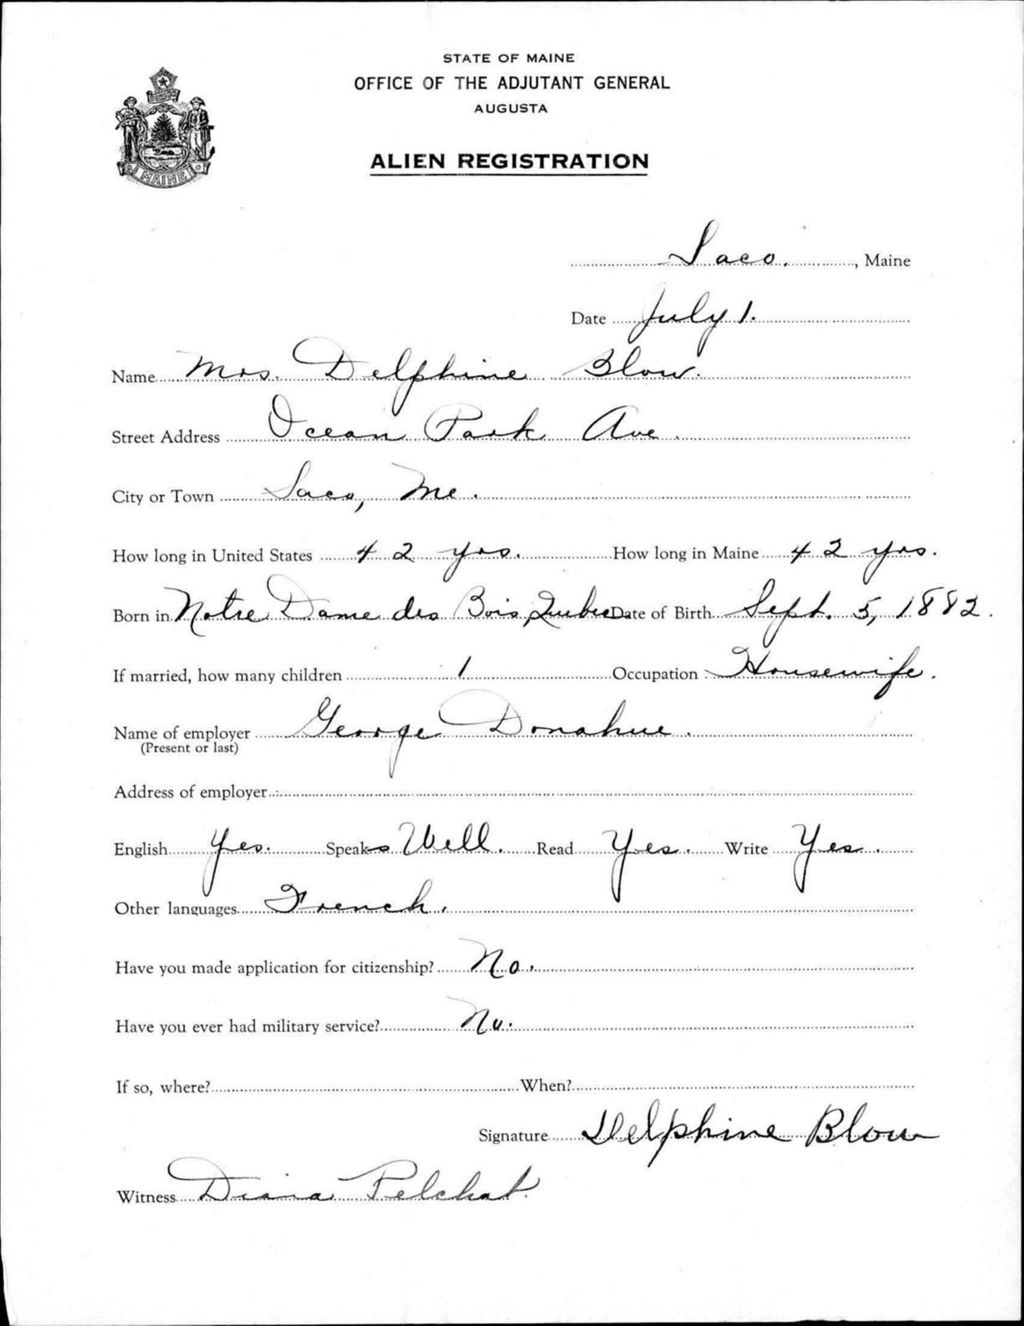 STATE OF MAINE
OFFICE OF THE ADJUTANT GENERAL
AUGUSTA
ALIEN REGISTRATION
MAINE
Saco. , Maine
Date July 1.
Name Mrs. Delphine Blow.
Street Address Ocean Park Ave.
City or Town Saco, Me.
How long in United States 42 yrs. How long in Maine 42 yrs.
Born in Notre Dame des Bois, Quebec Date of Birth Sept. 5, 1882.
If married, how many children 1 Occupation Housewife.
Name of employer George Donahue.
(Present or last)
Address of employer
English Yes. Speaks Well. Read Yes. Write Yes.
Other languages French.
Have you made application for citizenship? No.
Have you ever had military service? No.
If so, where? When?
Signature Delphine Blow
Witness Diana Pelchat